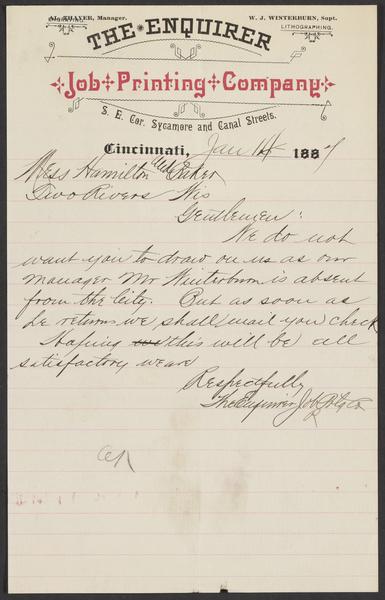 AL. THAYER, Manager.
W. J. WINTERBURN, Supt.
LITHOGRAPHING.
THE ENQUIRER
Job Printing Company
S. E. Cor. Sycamore and Canal Streets.
Cincinnati, Jan 14 1887
Mess Hamilton and Baker
Two Rivers Wis
Gentlemen:
We do not
want you to draw on us as our
manager Mr Winterburn is absent
from the city. But as soon as
he returns we shall mail you check
Hoping this will be all
satisfactory we are
Respectfully
The Enquirer Job Ptg Co